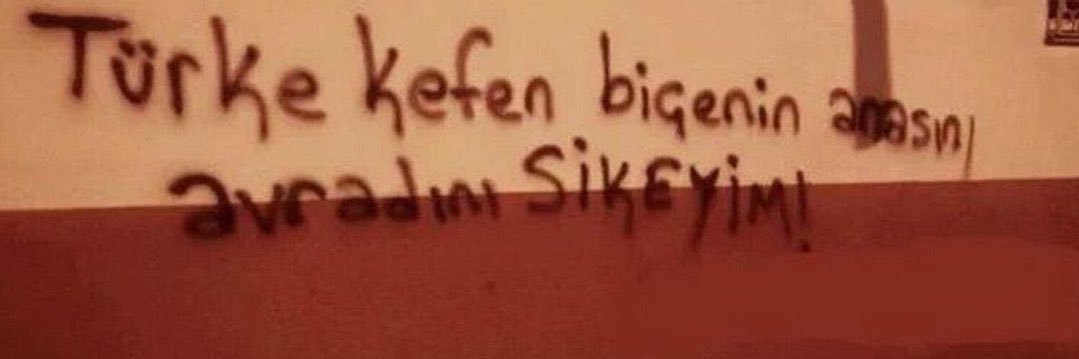 Türke kefen biçenin anasını
avradını SiKEYiM!